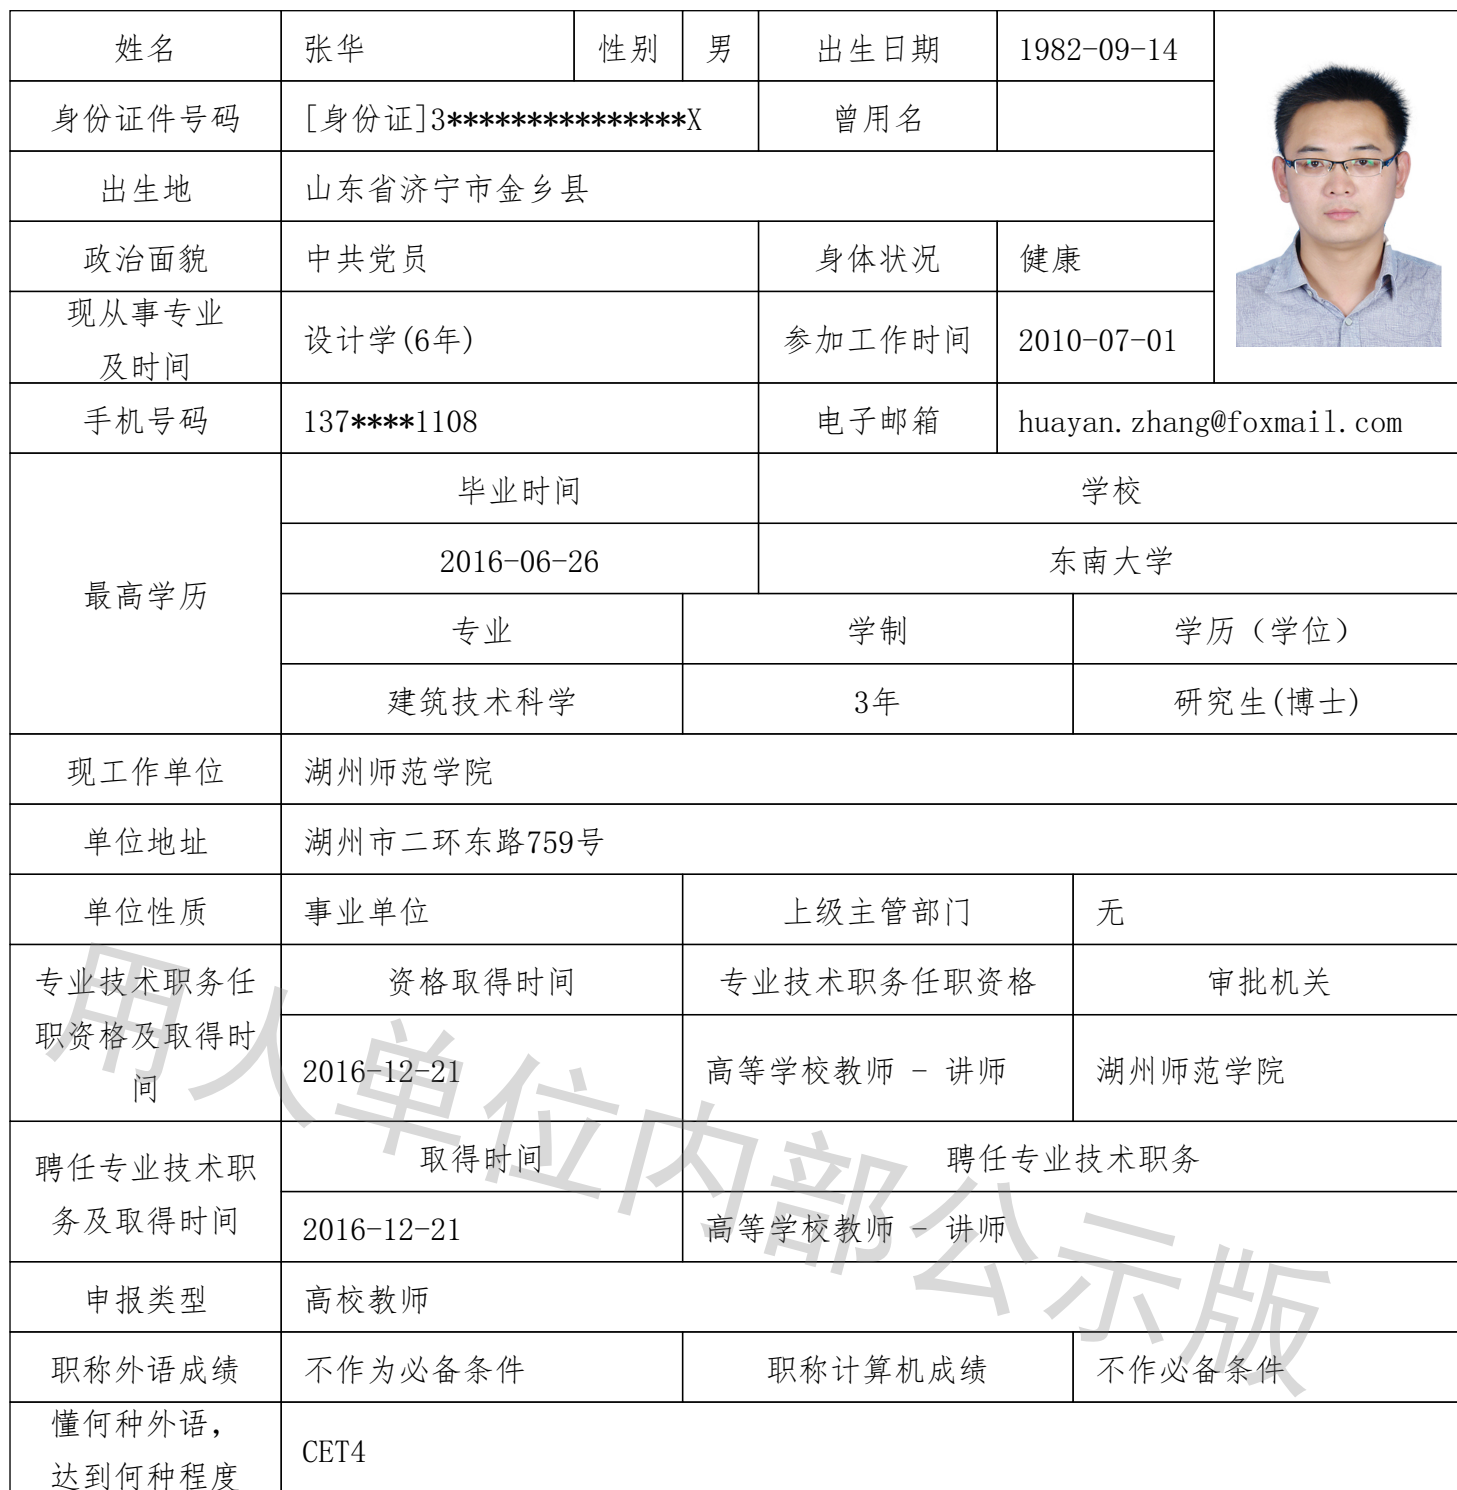 姓名 张华 性别 男 出生日期 1982-09-14
身份证件号码 [身份证]3***************X 曾用名
出生地 山东省济宁市金乡县
政治面貌 中共党员 身体状况 健康
现从事专业
及时间 设计学(6年) 参加工作时间 2010-07-01
手机号码 137****1108 电子邮箱 huayan.zhang@foxmail.com
最高学历
毕业时间 学校
2016-06-26 东南大学
专业 学制 学历（学位）
建筑技术科学 3年 研究生(博士)
现工作单位 湖州师范学院
单位地址 湖州市二环东路759号
单位性质 事业单位 上级主管部门 无
专业技术职务任
职资格及取得时
间
资格取得时间 专业技术职务任职资格 审批机关
2016-12-21 高等学校教师 - 讲师 湖州师范学院
聘任专业技术职
务及取得时间
取得时间 聘任专业技术职务
2016-12-21 高等学校教师 - 讲师
申报类型 高校教师
职称外语成绩 不作为必备条件 职称计算机成绩 不作必备条件
懂何种外语，
达到何种程度 CET4
用人单位内部公示版